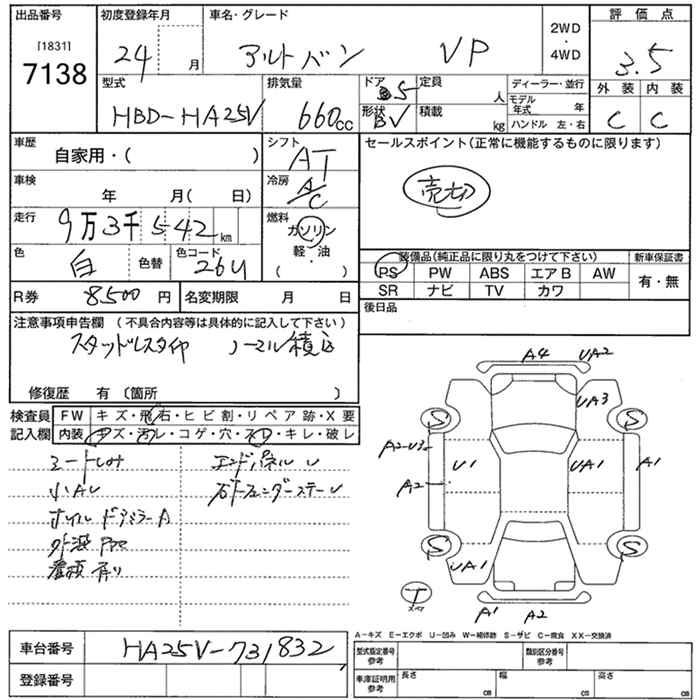 出品番号
[1831]
7138
初度登録年月
24 月
車名・グレード
アルトバン VP
2WD
・
4WD
評価点
3.5
外装 内装
C C
型式
HBD-HA25V
排気量
660cc
ドア
5
形状
BV
定員
人
積載
kg
ディーラー・並行
モデル年式 年
ハンドル 左・右
車歴
自家用・( )
シフト
AT
車検
年 月( 日)
冷房
A/C
走行
9万3千542km
燃料
ガソリン
軽・油
( )
色
白
色替
色コード
26U
R券 8500円
名変期限 月 日
セールスポイント(正常に機能するものに限ります)
売切
装備品(純正品に限り丸をつけて下さい)
新車保証書
PS PW ABS エアB AW
SR ナビ TV カワ
有・無
後日品
注意事項申告欄 (不具合内容等は具体的に記入して下さい)
スタッドレスタイヤ ノーマル積込
修復歴 有〔箇所 〕
検査員記入欄
FW キズ・飛石・ヒビ割・リペア跡・X要
内装 キズ・汚レ・コゲ・穴・スレ・キレ・破レ
シートしみ
小AU
ホイル ドアミラーA
エンドパネルU
A4 UA2
UA3
S S
A2-U3
U1 UA1 A1
A2
S S
UA1 UA1
T
スペア
A1 A2
A-キズ E-エクボ U-凹み W-補修跡 S-サビ C-腐食 XX-交換済
車台番号 HA25V-731832
登録番号
型式指定番号
参考
類別区分番号
参考
車庫証明用
参考
長さ cm
幅 cm
高さ cm